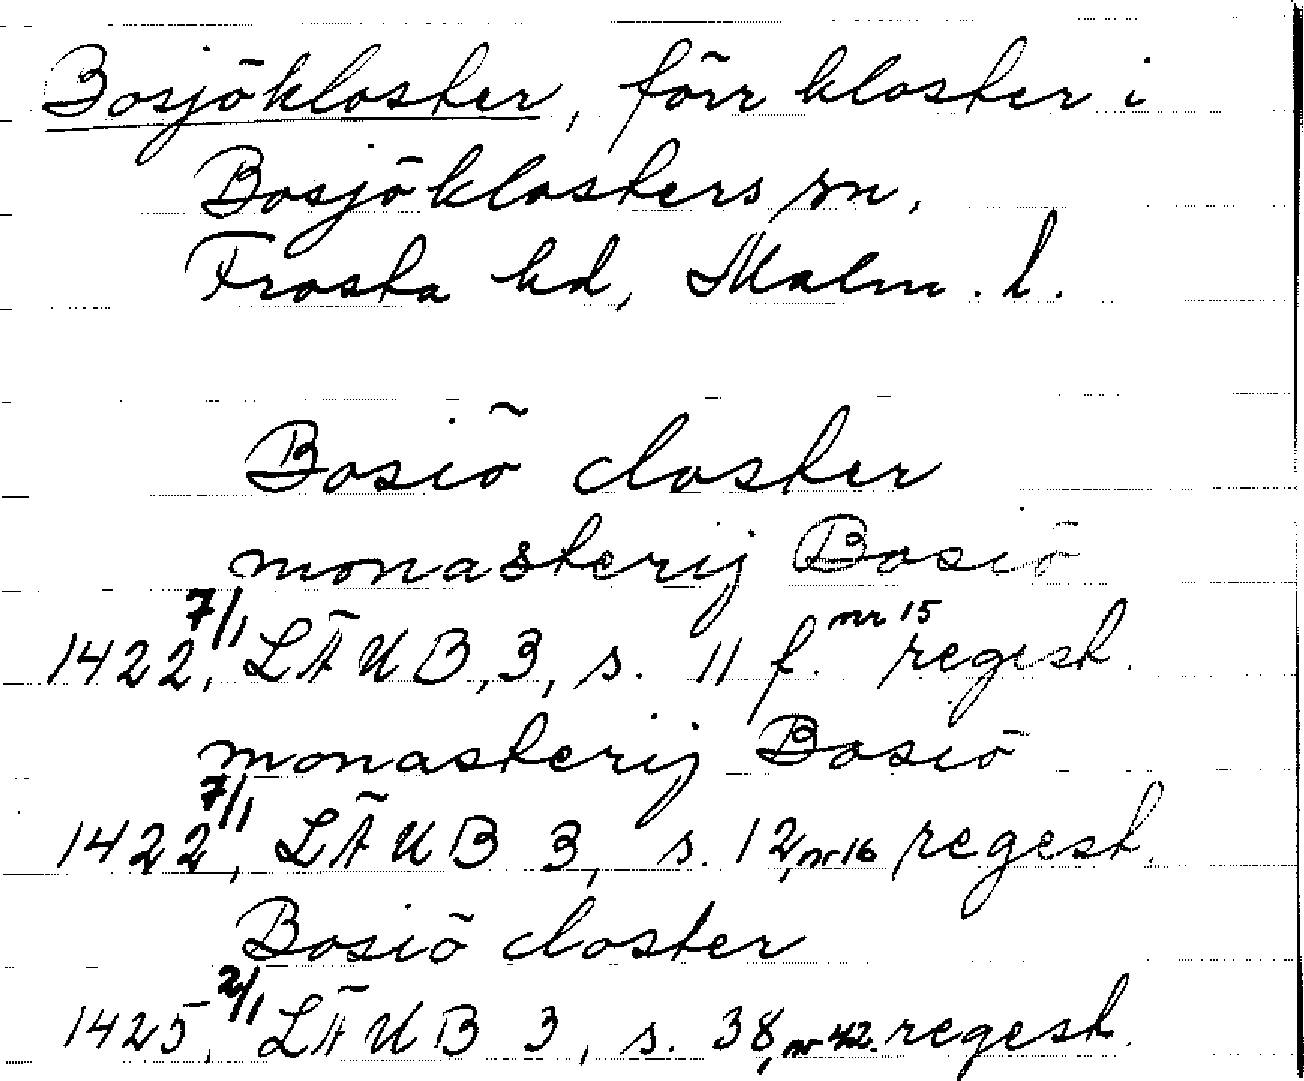 Bosjökloster, förr kloster i
Bosjöklosters sn,
Frosta hd, Malm. l.
Bosiö closter
monasterij Bosiö
1422 7/1, LÄUB, 3, s. 11 f. nr 15 regest.
monasterij Bosiö
1422 7/1, LÄUB 3, s. 12, nr 16 regest.
Bosiö closter
1425 2/1, LÄUB 3, s. 38, nr 42. regest.